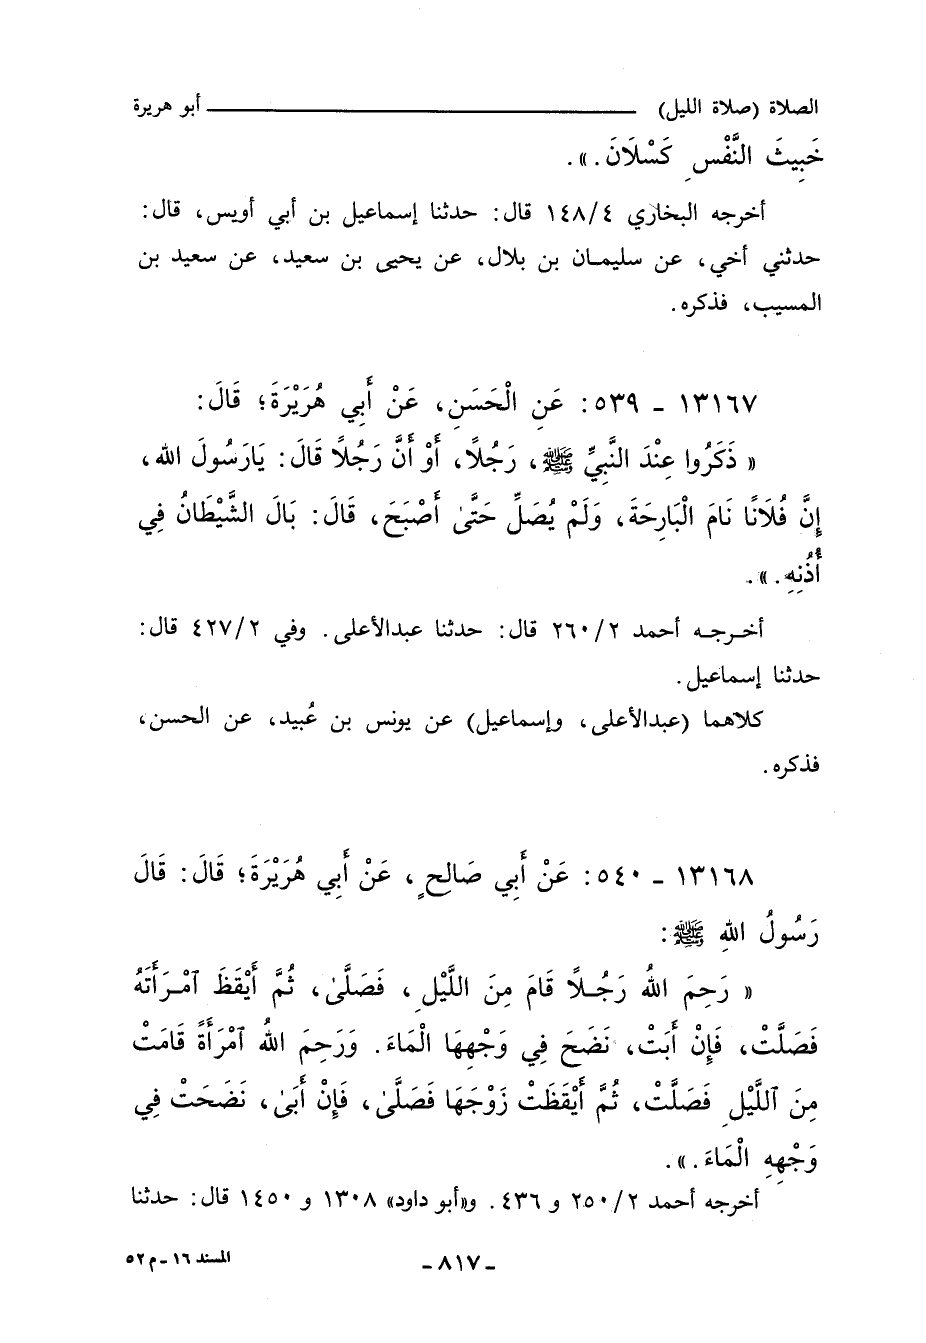 الصلاة (صلاة الليل) ــــــــــــــــــــــــــــــ أبو هريرة
خَبِيثَ النَّفْسِ كَسْلَانَ . » .
أخرجه البخاري ١٤٨/٤ قال : حدثنا إسماعيل بن أبي أويس ، قال :
حدثني أخي ، عن سليمـان بن بلال ، عن يحيى بن سعيد ، عن سعيد بن
المسيب ، فذكره .
١٣١٦٧ ـ ٥٣٩ : عَنِ الْحَسَنِ ، عَنْ أَبِي هُرَيْرَةَ ؛ قَالَ :
« ذَكَرُوا عِنْدَ النَّبِيِّ ﷺ ، رَجُلًا ، أَوْ أَنَّ رَجُلًا قَالَ : يَارَسُولَ الله ،
إِنَّ فُلَانًا نَامَ الْبَارِحَةَ ، وَلَمْ يُصَلِّ حَتَّىٰ أَصْبَحَ ، قَالَ : بَالَ الشَّيْطَانُ فِي
أُذُنِهِ . » .
أخـرجـه أحمد ٢٦٠/٢ قال : حدثنا عبدالأعلى . وفي ٤٢٧/٢ قال :
حدثنا إسماعيل .
كلاهما (عبدالأعلى ، وإسماعيل) عن يونس بن عُبيد ، عن الحسن ،
فذكره .
١٣١٦٨ ـ ٥٤٠ : عَنْ أَبِي صَالِحٍ ، عَنْ أَبِي هُرَيْرَةَ ؛ قَالَ : قَالَ
رَسُولُ اللهِ ﷺ :
« رَحِمَ اللهُ رَجُـلًا قَامَ مِنَ اللَّيْلِ ، فَصَلَّىٰ ، ثُمَّ أَيْقَظَ ٱمْـرَأَتَهُ
فَصَلَّتْ ، فَإِنْ أَبَتْ ، نَضَحَ فِي وَجْهِهَا الْمَاءَ . وَرَحِمَ اللهُ ٱمْرَأَةً قَامَتْ
مِنَ ٱللَّيْلِ فَصَلَّتْ ، ثُمَّ أَيْقَظَتْ زَوْجَهَا فَصَلَّىٰ ، فَإِنْ أَبَىٰ ، نَضَحَتْ فِي
وَجْهِهِ الْمَاءَ . » .
أخرجه أحمد ٢٥٠/٢ و ٤٣٦ . و«أبو داود» ١٣٠٨ و ١٤٥٠ قال : حدثنا
ـ ٨١٧ ـ
المسند ١٦ ـ م ٥٢